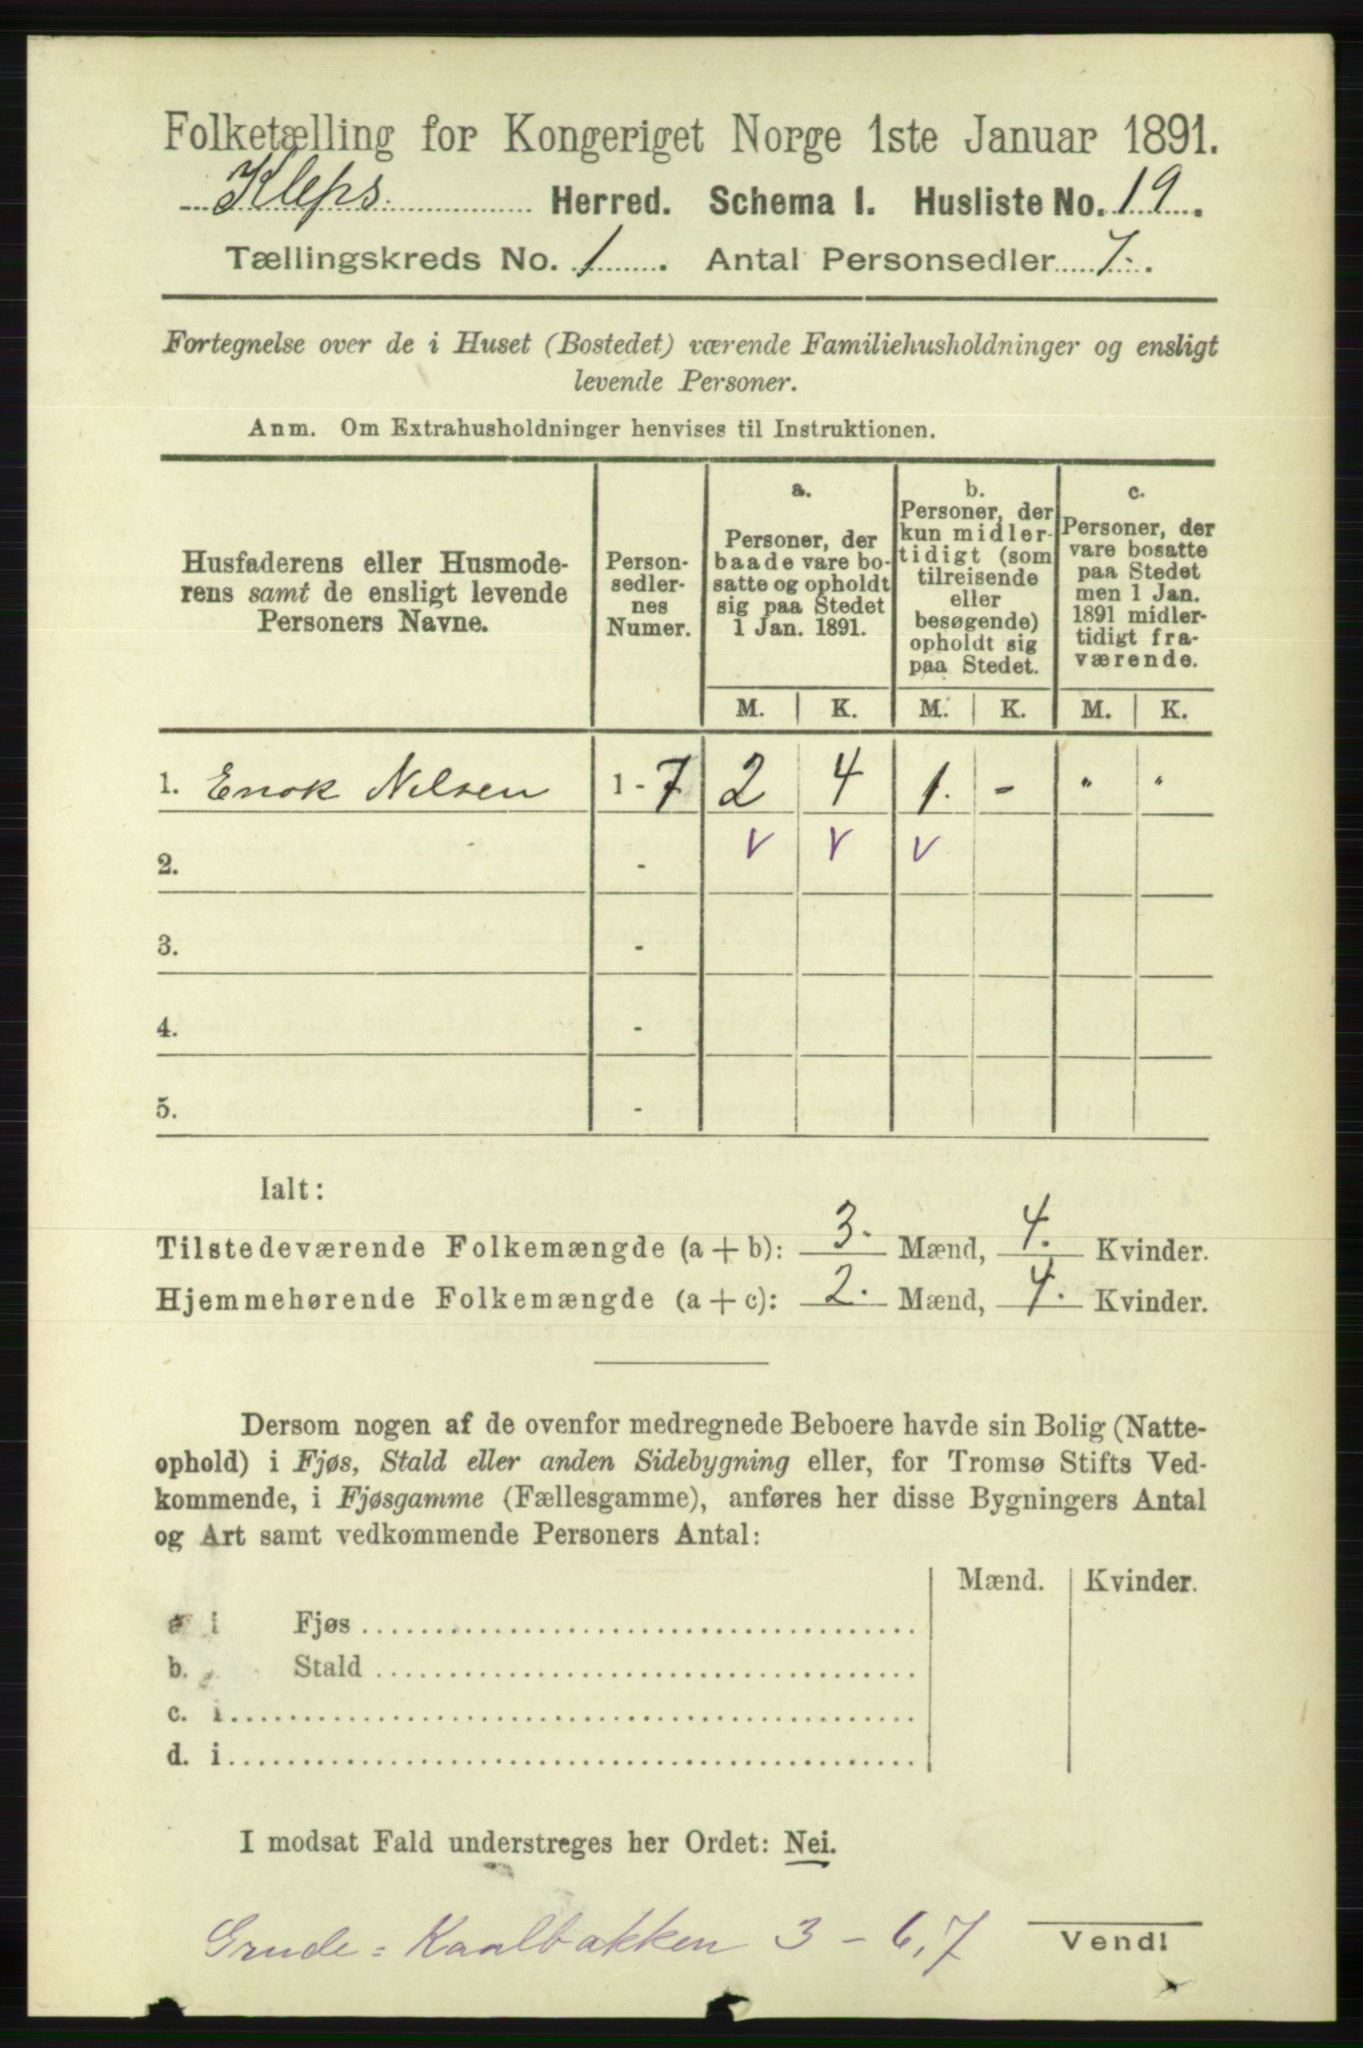 Folketælling for Kongeriget Norge 1ste Januar 1891.
Kleps Herred. Schema I. Husliste No. 19.
Tællingskreds No. 1. Antal Personsedler 7.
Fortegnelse over de i Huset (Bostedet) værende Familiehusholdninger og ensligt
levende Personer.
Anm. Om Extrahusholdninger henvises til Instruktionen.
Husfaderens eller Husmode-
rens samt de ensligt levende
Personers Navne.
Person-
sedler-
nes
Numer.
a.
Personer, der
baade vare bo-
satte og opholdt
sig paa Stedet
1 Jan. 1891.
b.
Personer, der
kun midler-
tidigt (som
tilreisende
eller
besøgende)
opholdt sig
paa Stedet.
c.
Personer, der
vare bosatte
paa Stedet
men 1 Jan.
1891 midler-
tidigt fra-
værende.
M. K. M. K. M. K.
1. Enok Nilsen 1 - 7 2 4 1. - " "
2. - v v v
3. -
4. -
5. -
Ialt:
Tilstedeværende Folkemængde (a + b): 3. Mænd, 4. Kvinder.
Hjemmehørende Folkemængde (a + c): 2. Mænd, 4. Kvinder.
Dersom nogen af de ovenfor medregnede Beboere havde sin Bolig (Natte-
ophold) i Fjøs, Stald eller anden Sidebygning eller, for Tromsø Stifts Ved-
kommende, i Fjøsgamme (Fællesgamme), anføres her disse Bygningers Antal
og Art samt vedkommende Personers Antal:
Mænd. Kvinder.
a i Fjøs
b. Stald
c. i
d. i
I modsat Fald understreges her Ordet: Nei.
Grude = Kaalbakken 3 - 6,7
Vend!